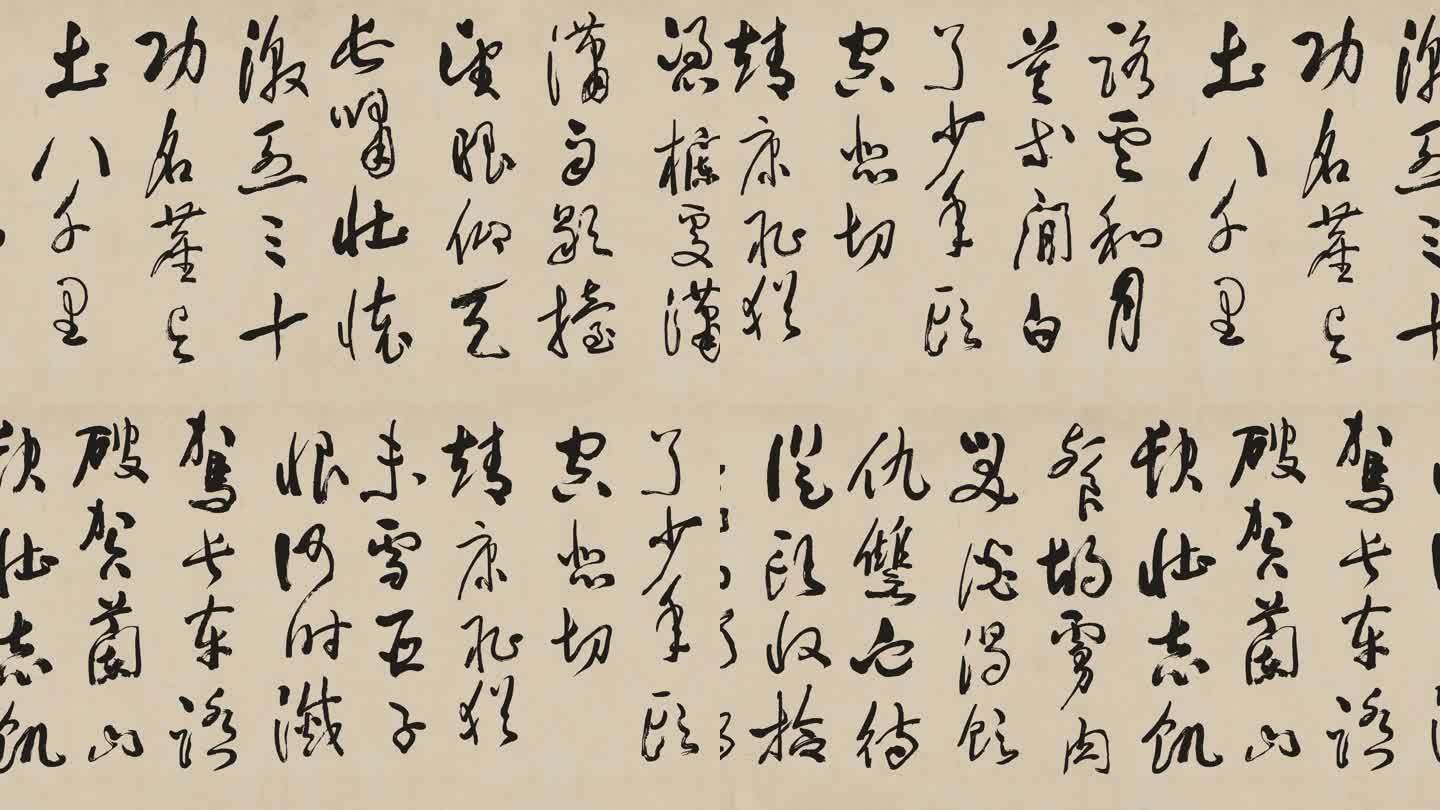 激烈三十
功名塵与
土八千里
路雲和月
莫等閒白
了少年頭
空悲切
靖康恥猶
憑欄處瀟
瀟雨歇擡
望眼仰天
長嘯壯懷
激烈三十
功名塵与
土八千里
駕長車踏
破賀蘭山
缺壯志飢
餐胡虜肉
笑談渴飲
仇讎血待
從頭收拾
了少年頭
空悲切
靖康恥猶
未雪臣子
恨何時滅
駕長車踏
破賀蘭山
缺壯志飢